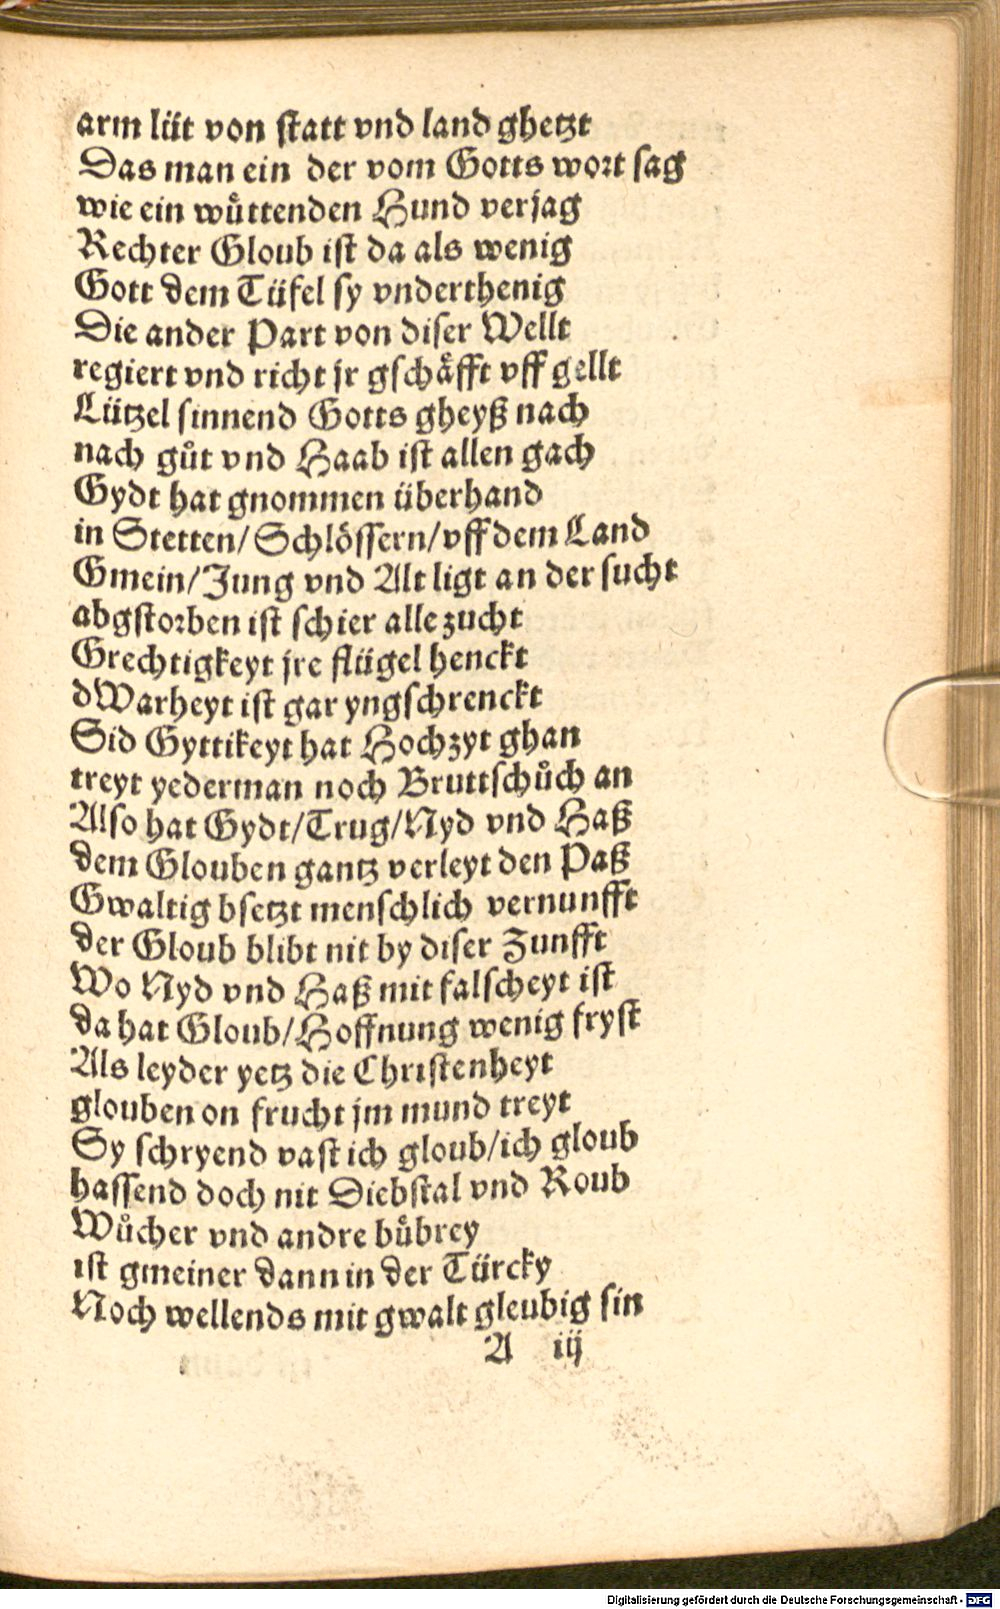 arm lüt von statt vnd land ghetzt
Das man ein der vom Gotts wort sag
wie ein wuͤttenden Hund verjag
Rechter Gloub ist da als wenig
Gott dem Tüfel sy vnderthenig
Die ander Part von diser Wellt
regiert vnd richt jr gschaͤfft vff gellt
Lützel sinnend Gotts gheyß nach
nach guͦt vnd Haab ist allen gach
Gydt hat gnommen überhand
in Stetten/Schlössern/vff dem Land
Gmein/Jung vnd Alt ligt an der sucht
abgstorben ist schier alle zucht
Grechtigkeyt jre flügel henckt
dWarheyt ist gar yngschrenckt
Sid Gyttikeyt hat Hochzyt ghan
treyt yederman noch Bruttschuͦch an
Also hat Gydt/Trug/Nyd vnd Haß
dem Glouben gantz verleyt den Paß
Gwaltig bsetzt menschlich vernunfft
der Gloub blibt nit by diser Zunfft
Wo Nyd vnd Haß mit falscheyt ist
da hat Gloub/Hoffnung wenig fryst
Als leyder yetz die Christenheyt
glouben on frucht jm mund treyt
Sy schryend vast ich gloub/ich gloub
hassend doch nit Diebstal vnd Roub
Wuͦcher vnd andre buͤbrey
ist gmeiner dann in der Türcky
Noch wellends mit gwalt gleubig sin
A iij
Digitalisierung gefördert durch die Deutsche Forschungsgemeinschaft - DFG